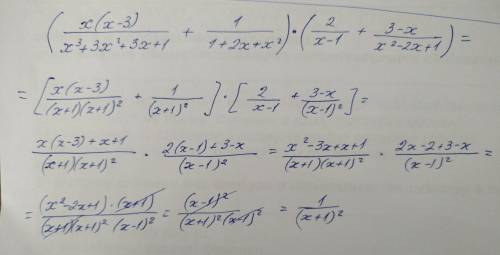 (x(x-3)/(x³+3x²+3x+1) + 1/(1+2x+x²)) · (2/(x-1) + (3-x)/(x²-2x+1)) =
= [x(x-3)/((x+1)(x+1)²) + 1/(x+1)²] · [2/(x-1) + (3-x)/(x-1)²] =
(x(x-3)+x+1)/((x+1)(x+1)²) · (2(x-1)+3-x)/(x-1)² = (x²-3x+x+1)/((x+1)(x+1)²) · (2x-2+3-x)/(x-1)² =
= ((x²-2x+1)·(x+1))/((x+1)(x+1)²(x-1)²) = (x-1)²/((x+1)²(x-1)²) = 1/(x+1)²